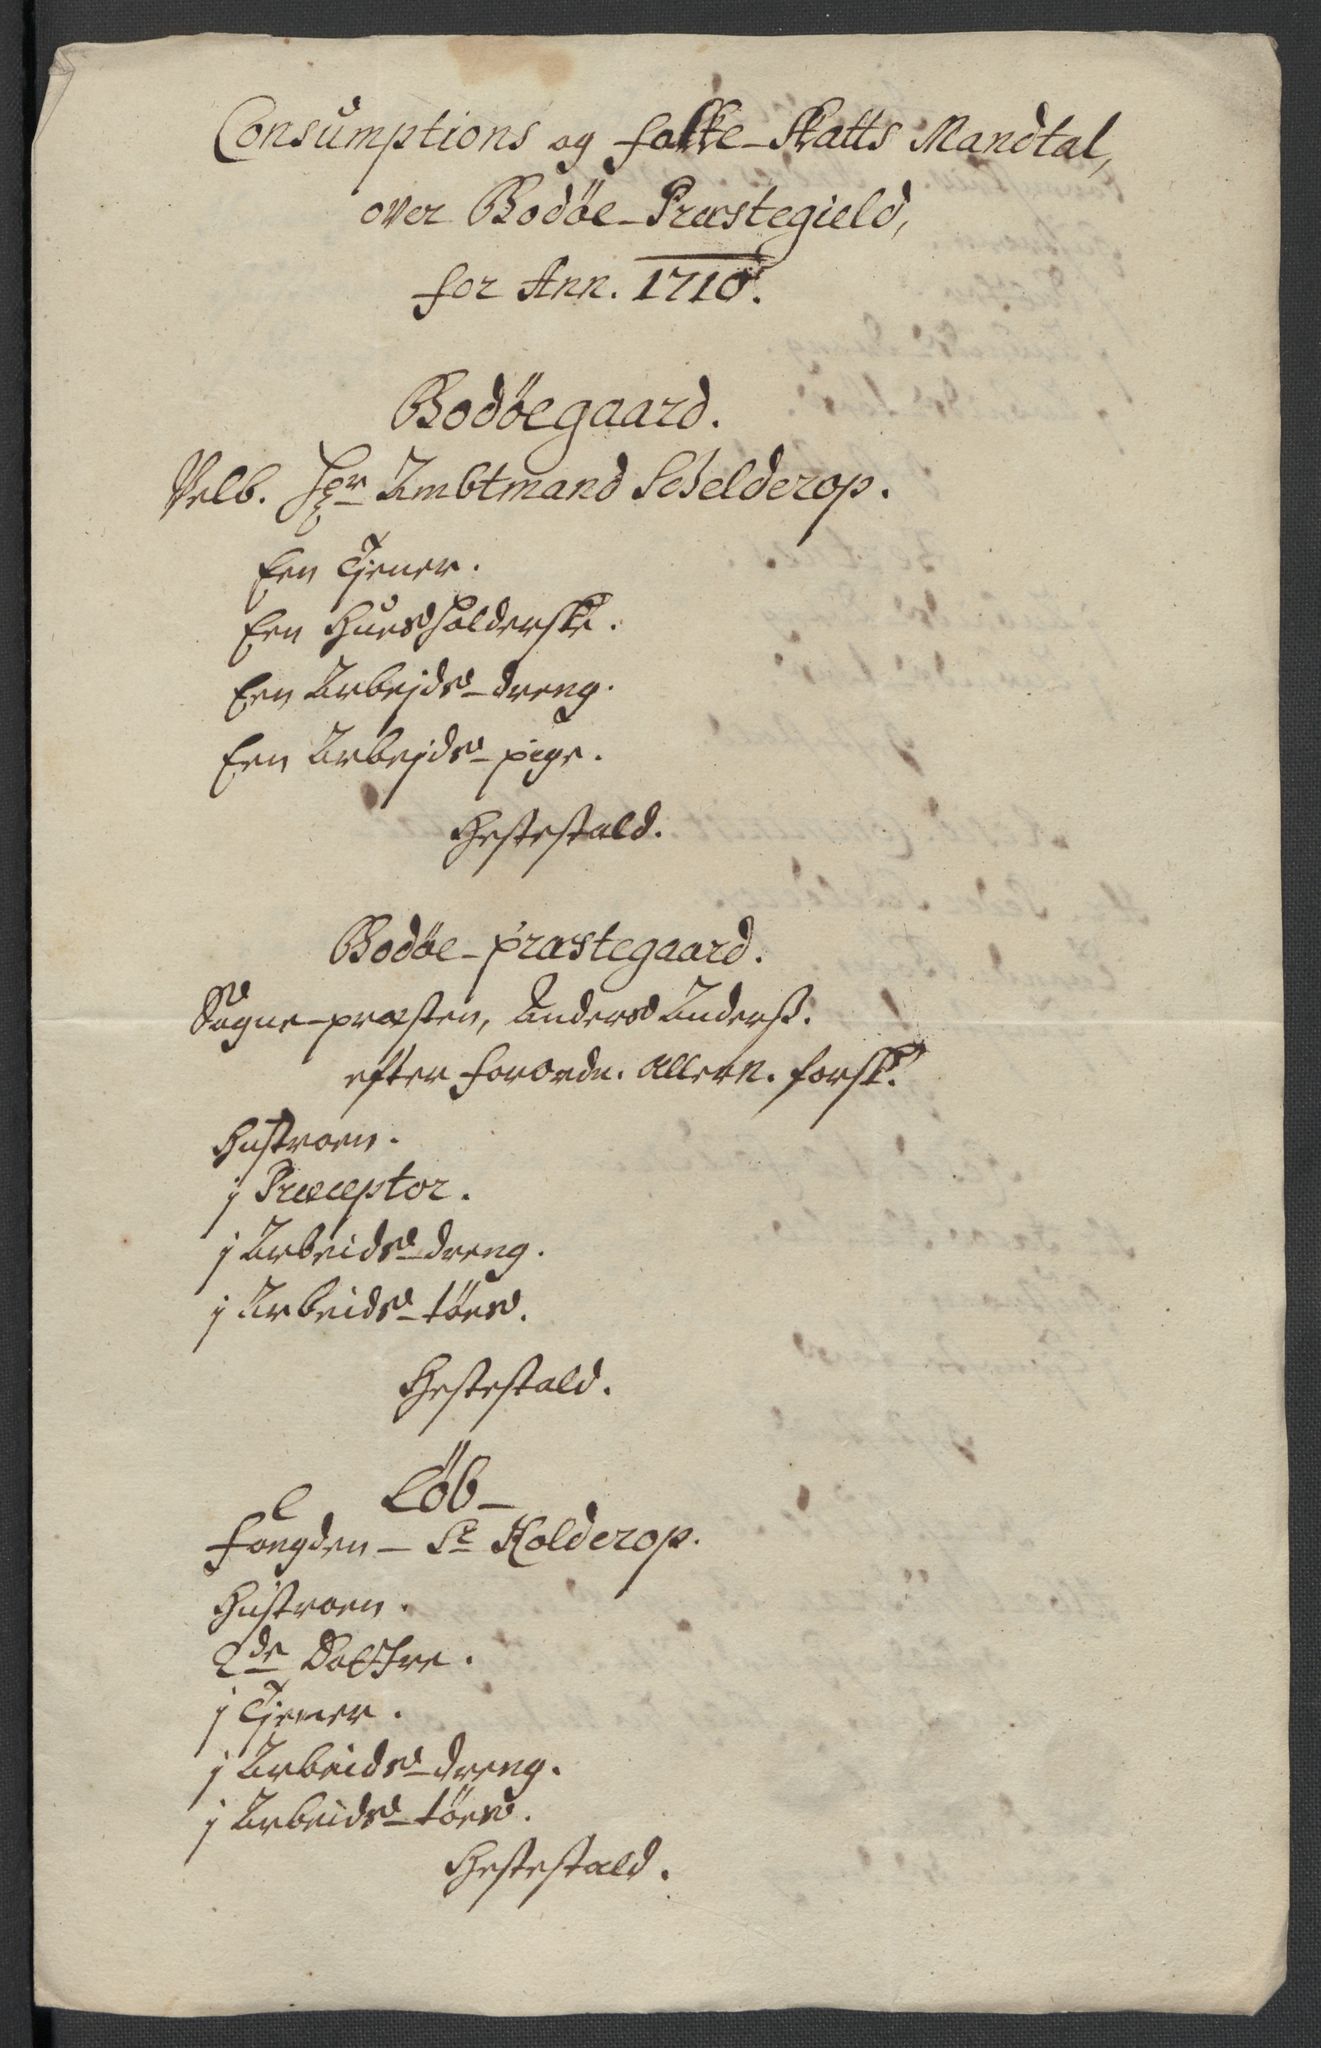 Consumptions og folke-Skatts Mandtal,
over Bodøe-Præstegield,
for Ann. 1710.
Bodøegaard.
Velb. Hr Ambtmand Schelderop.
Een Tjener.
Een Huusholderske.
Een Arbejds-dreng.
Een Arbejds-pige.
Hestestald.
Bodøe-præstegaard.
Sogne-præsten, Anders Anderss.
efter forordn. allern. forsk.
Hustroen.
j Præceptor.
j Arbeids-dreng.
j Arbeids-tøes.
Hestestald.
Løb-
Fougden - Sr Kolderop.
Hustroen.
2de Dottre.
j Tjener.
j Arbeids-dreng.
j Arbeids-tøes.
Hestestald.